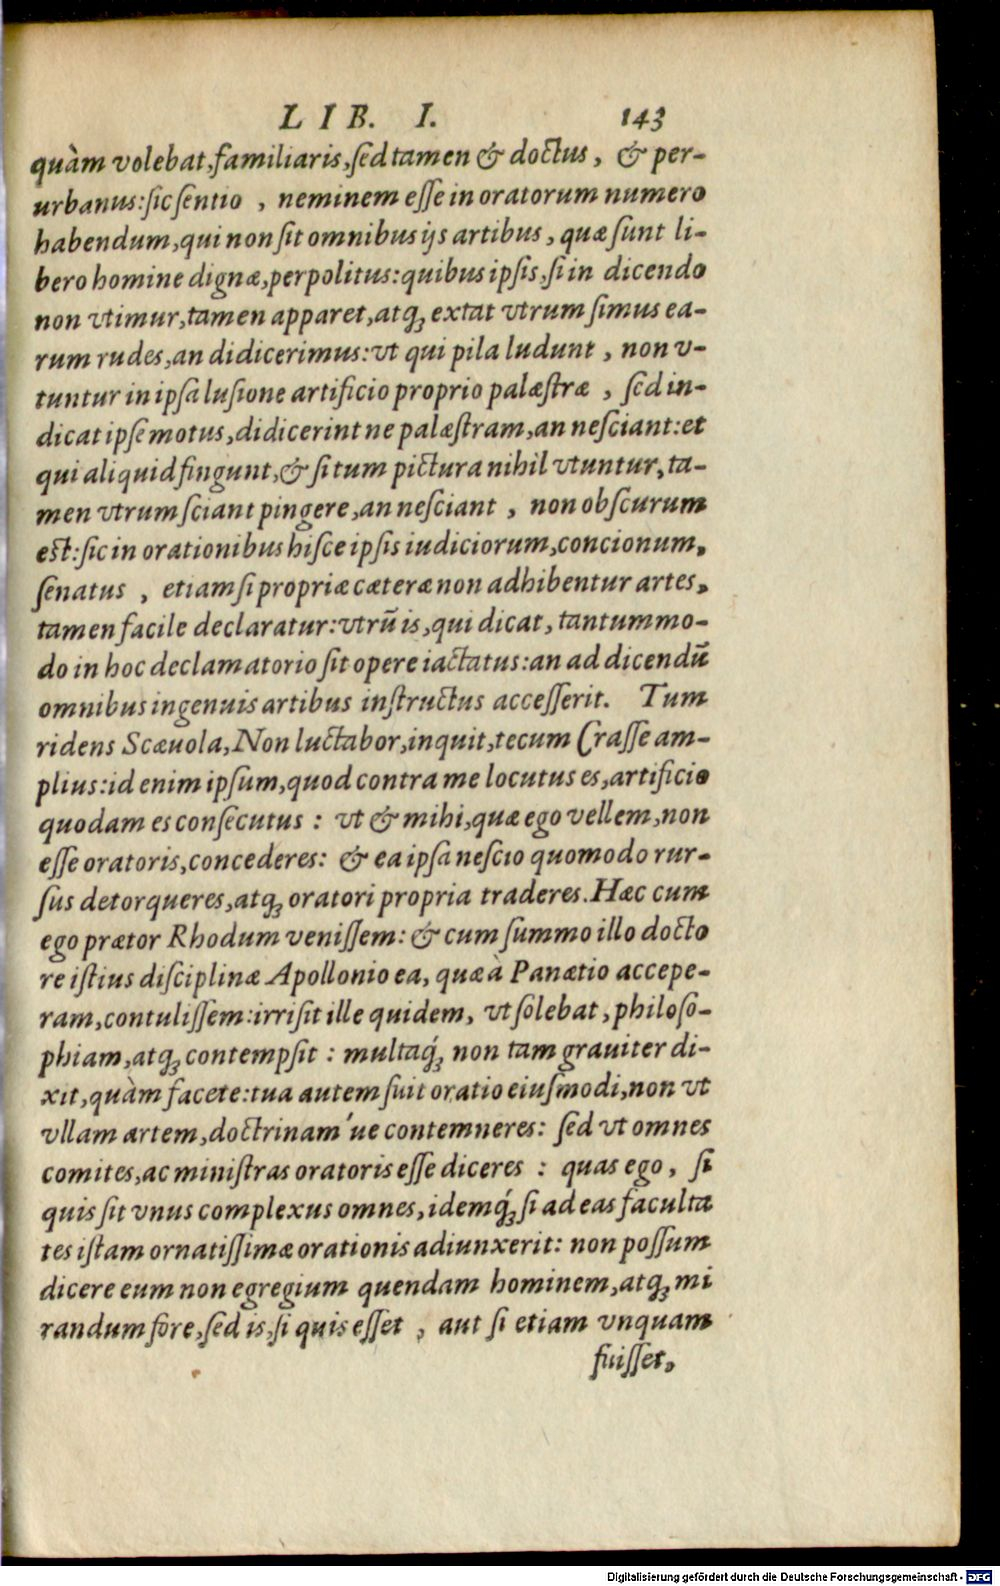 LIB. I. 143
quàm volebat, familiaris, sed tamen & doctus, & per-
urbanus: sic sentio , neminem esse in oratorum numero
habendum, qui non sit omnibus ijs artibus, quæ sunt li-
bero homine dignæ, perpolitus: quibus ipsis, si in dicendo
non vtimur, tamen apparet, atq; extat vtrum simus ea-
rum rudes, an didicerimus: vt qui pila ludunt , non v-
tuntur in ipsa lusione artificio proprio palæstræ , sed in-
dicat ipse motus, didicerint ne palæstram, an nesciant: et
qui aliquid fingunt, & si tum pictura nihil vtuntur, ta-
men vtrum sciant pingere, an nesciant , non obscurum
est: sic in orationibus hisce ipsis iudiciorum, concionum,
senatus , etiam si propriæ cæteræ non adhibentur artes,
tamen facile declaratur: vtrũ is, qui dicat, tantummo-
do in hoc declamatorio sit opere iactatus: an ad dicendũ
omnibus ingenuis artibus instructus accesserit. Tum
ridens Scæuola, Non luctabor, inquit, tecum Crasse am-
plius: id enim ipsum, quod contra me locutus es, artificio
quodam es consecutus : vt & mihi, quæ ego vellem, non
esse oratoris, concederes: & ea ipsa nescio quomodo rur-
sus detorqueres, atq; oratori propria traderes. Hæc cum
ego prætor Rhodum venissem: & cum summo illo docto
re istius disciplinæ Apollonio ea, quæ à Panætio accepe-
ram, contulissem: irrisit ille quidem, vt solebat, philoso-
phiam, atq; contempsit : multaq́; non tam grauiter di-
xit, quàm facete: tua autem fuit oratio eiusmodi, non vt
vllam artem, doctrinam úe contemneres: sed vt omnes
comites, ac ministras oratoris esse diceres : quas ego, si
quis sit vnus complexus omnes, idemq́; si ad eas faculta
tes istam ornatissimæ orationis adiunxerit: non possum
dicere eum non egregium quendam hominem, atq; mi
randum fore, sed is, si quis esset , aut si etiam vnquam
fuisset,
Digitalisierung gefördert durch die Deutsche Forschungsgemeinschaft - DFG